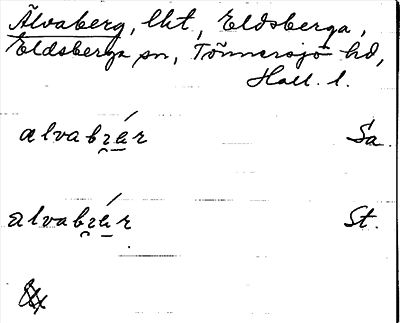 Älvaberg, lht, Eldsberga,
Eldsberga sn, Tönnersjö hd,
Hall. l.
alvabrár Sa.
alvabrár St.